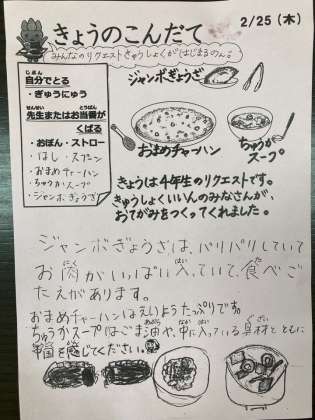 きょうのこんだて
2/25（木）
みんなのリクエストきゅうしょくがはじまるのん♪
自分でとる
・ぎゅうにゅう
先生またはお当番が
くばる
・おぼん・ストロー
・はし・スプーン
・おまめチャーハン
・ちゅうかスープ
・ジャンボぎょうざ
ジャンボぎょうざ
おまめチャーハン
ちゅうか
スープ
きょうは4年生のリクエストです。
きゅうしょくいいんのみなさんが、
おてがみをつくってくれました。
ジャンボぎょうざは、パリパリしていて
お肉がいっぱい入っていて、食べご
たえがあります。
おまめチャーハンはえいようたっぷりです。
ちゅうかスープはごま油や、中に入っている具材とともに
中国を感じてください。